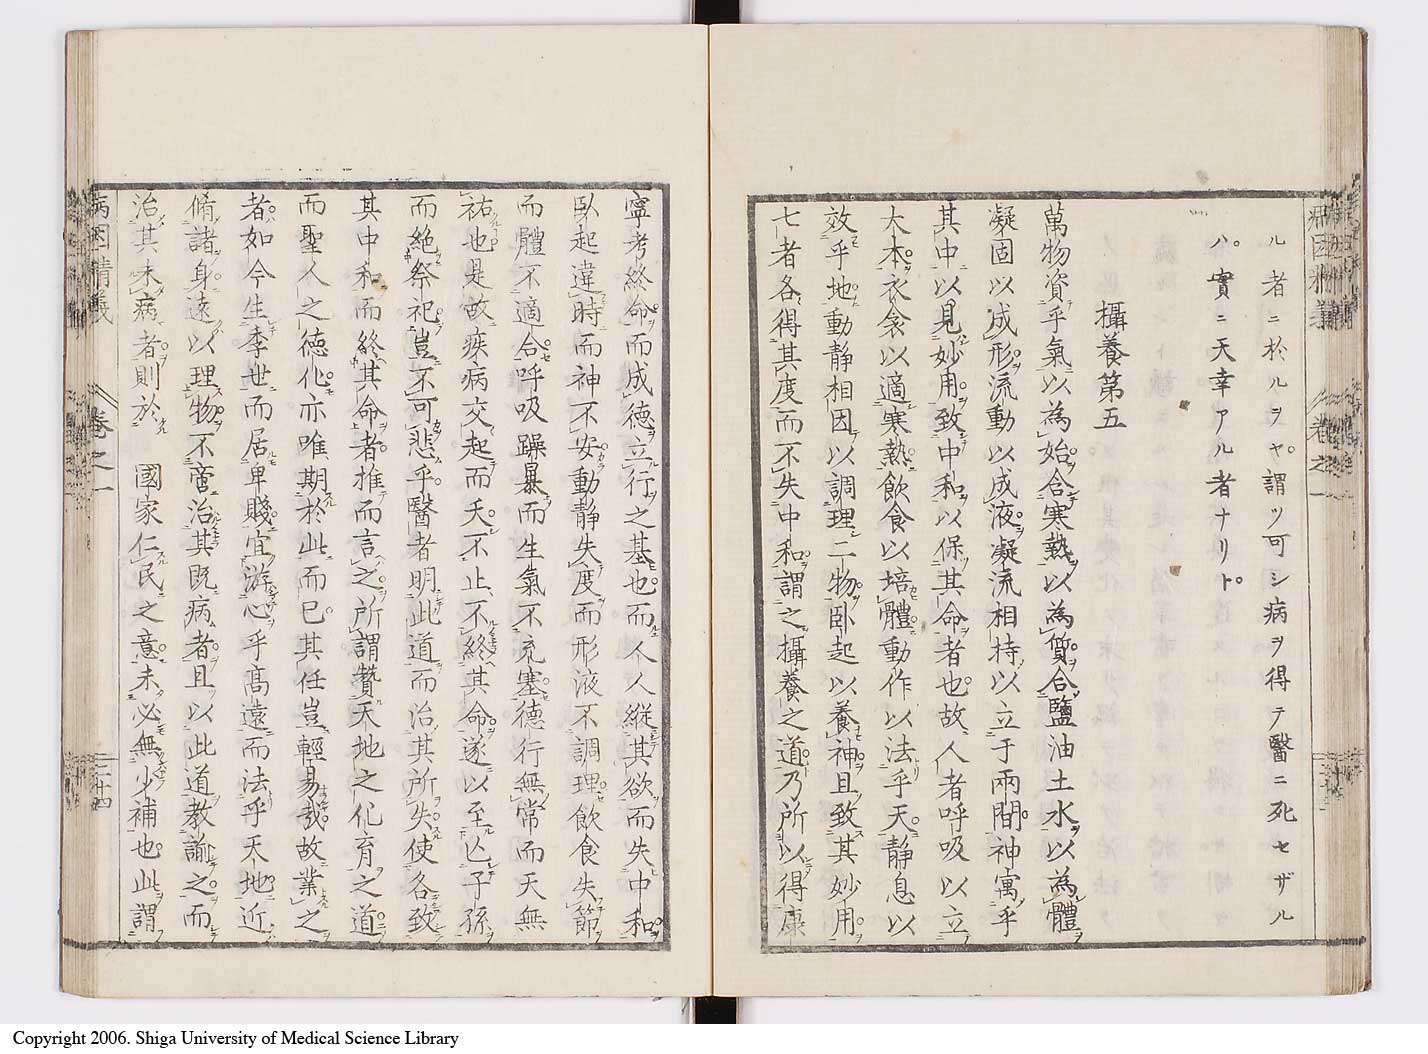 ル者ニ於ルヲヤ謂ツ可シ病ヲ得テ醫ニ死セザル
ハ實ニ天幸アル者ナリト
攝養第五
萬物資乎氣以為始合寒熱以為質合鹽油土水以為體
凝固以成形流動以成液凝流相持以立于兩間神寓乎
其中以見妙用致中和以保其命者也故人者呼吸以立
大本衣衾以適寒熱飲食以培體動作以法乎天靜息以
效乎地動靜相因以調理二物臥起以養神且致其妙用
七者各得其度而不失中和謂之攝養之道乃所以得康
寧考終命而成德立行之基也而人人縱其欲而失中和
臥起違時而神不安動靜失度而形液不調理飲食失節
而體不適合呼吸躁暴而生氣不流塞德行無常而天無
祐也是故疾病交起而夭不止不終其命遂以至亾子孫
而絶祭祀豈不可悲乎醫者明此道而治其所失使各致
其中和而終其命者推而言之所謂贊天地之化育之道
而聖人之德化亦唯期於此而已其任豈輕易哉故業之
者如今生季世而居卑賤宜游心乎高遠而法乎天地近
脩諸身遠以理物不啻治其既病者且以此道教諭之而
治其未病者則於 國家仁民之意未必無少補也此謂
病因精義 卷之一 二十四
Copyright 2006. Shiga University of Medical Science Library